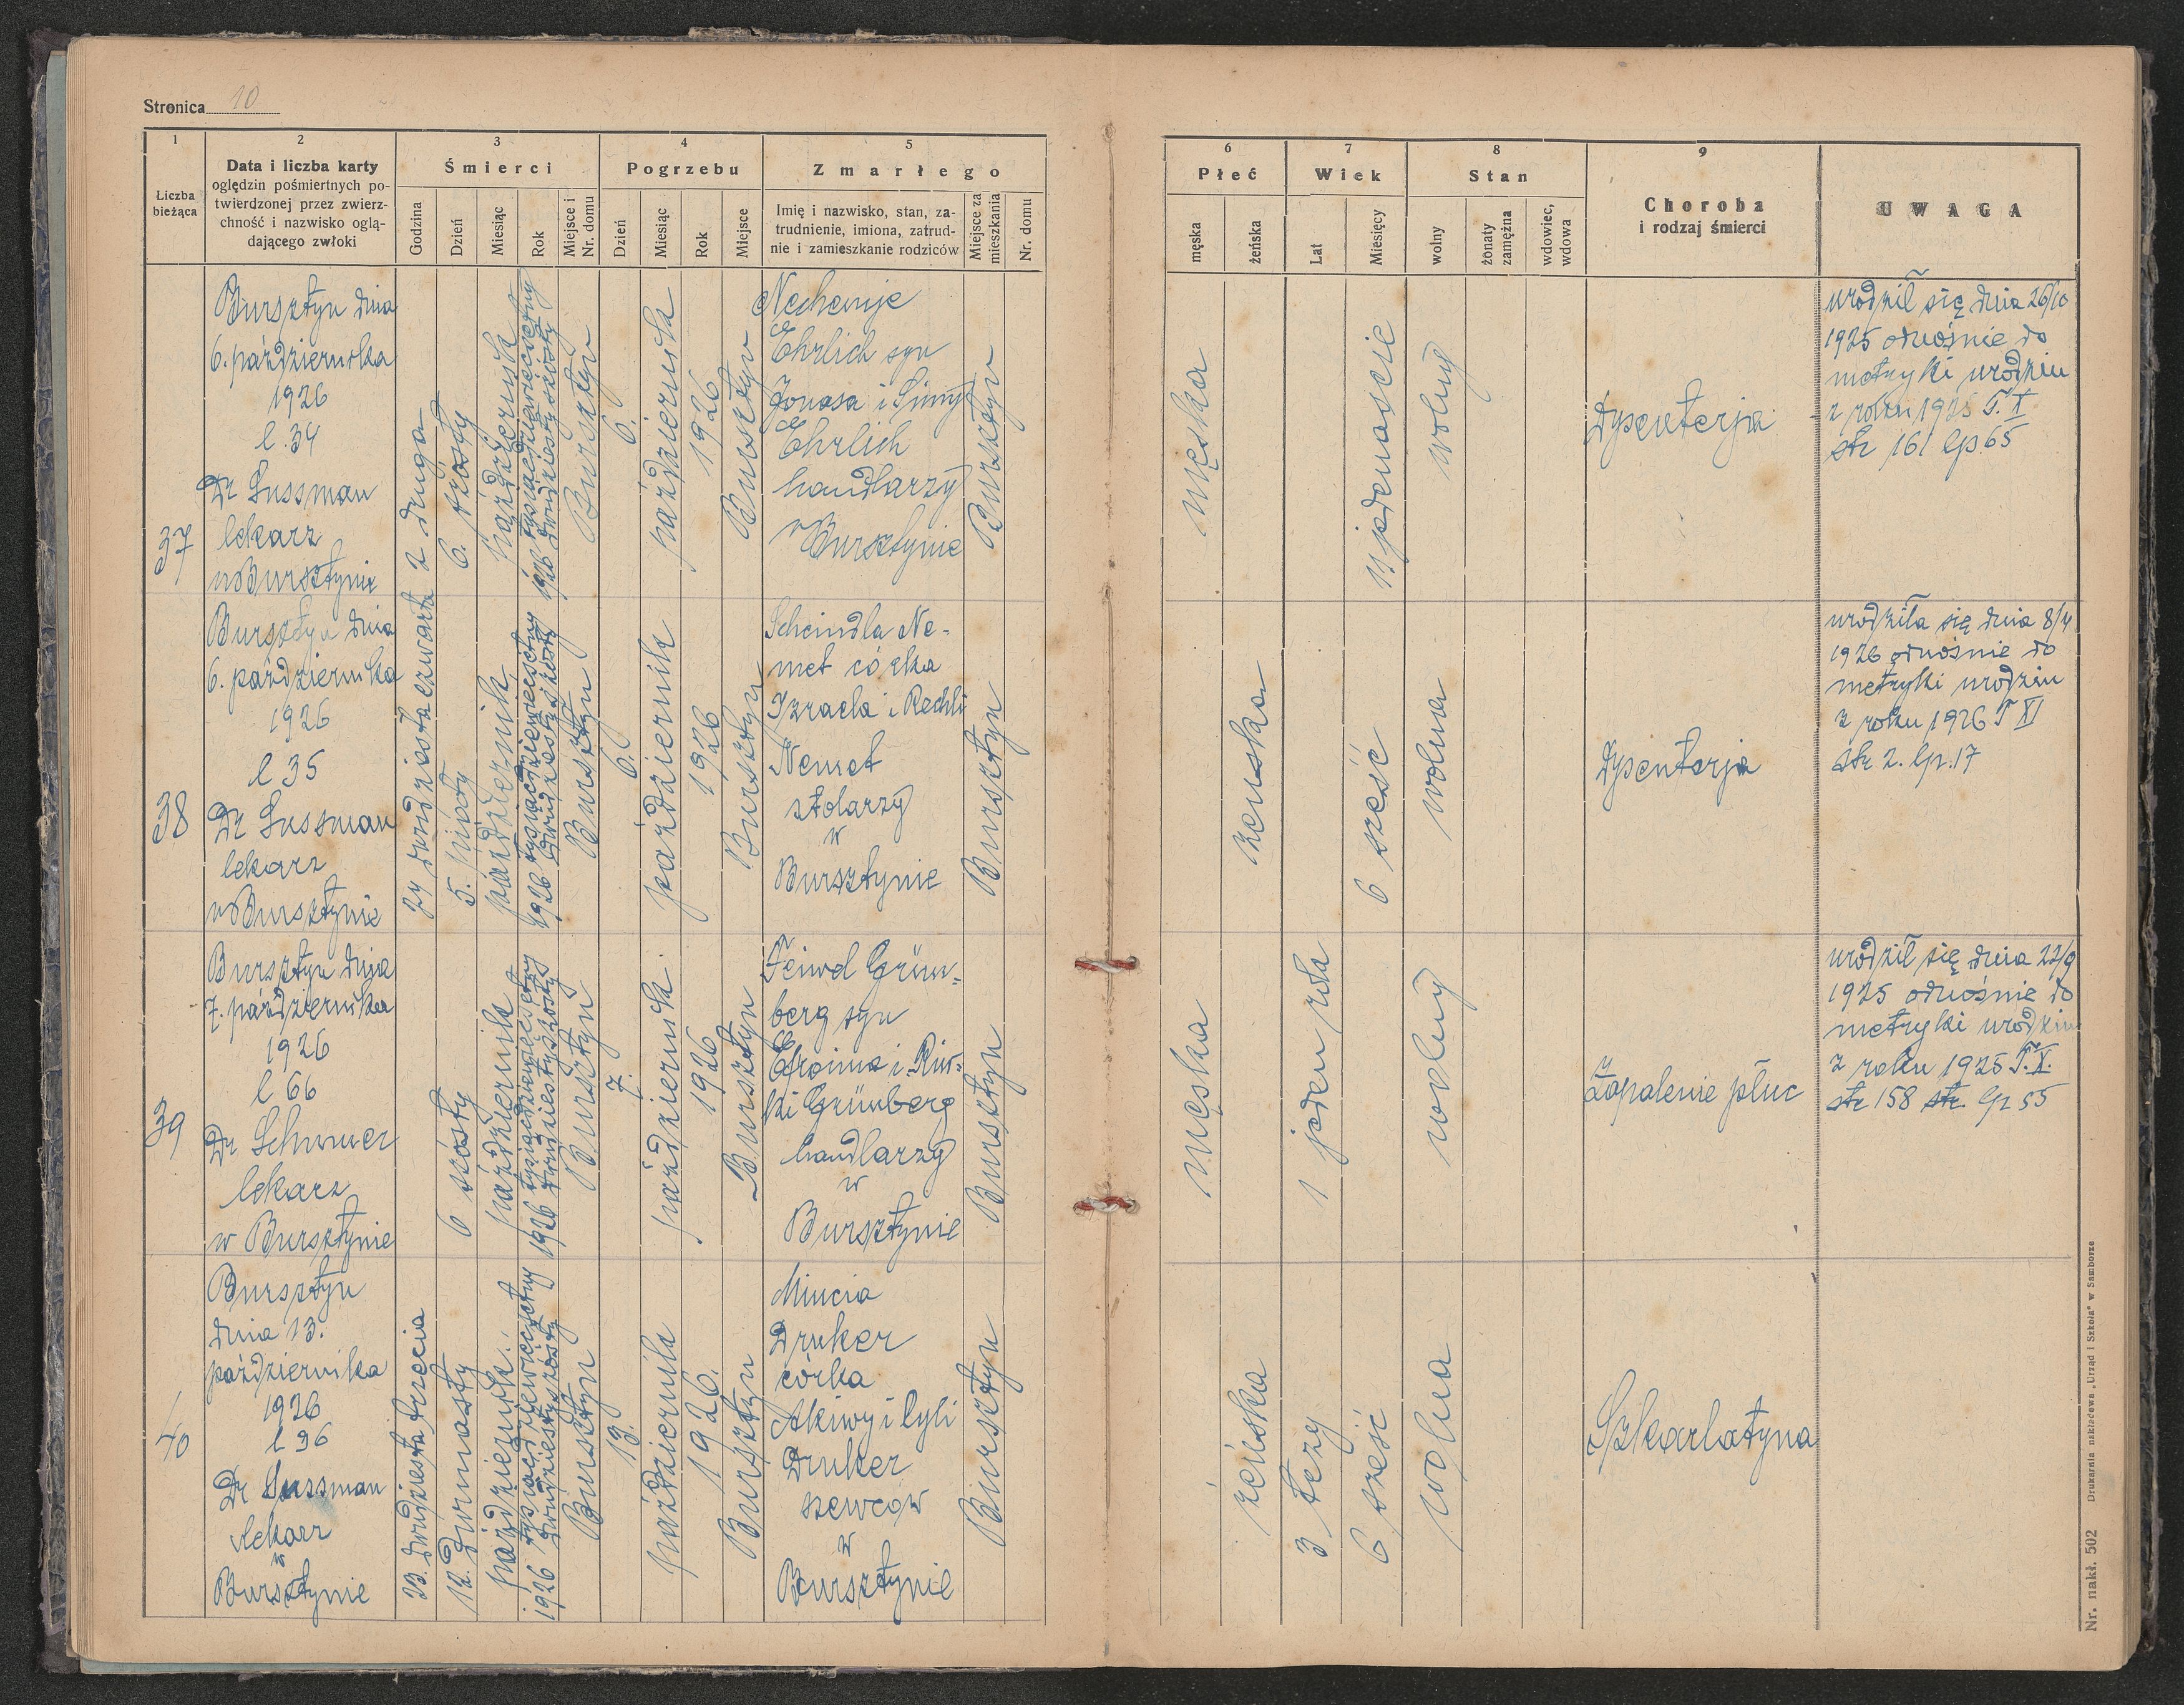 Stronica 10
1
2
3
4
5
6
7
8
9
Liczba
bieżąca
Data i liczba karty
oględzin pośmiertnych po-
twierdzonej przez zwierz-
chność i nazwisko oglą-
dającego zwłoki
Śmierci
Godzina
Dzień
Miesiąc
Rok
Miejsce i
Nr. domu
Pogrzebu
Dzień
Miesiąc
Rok
Miejsce
Zmarłego
Imię i nazwisko, stan, za-
trudnienie, imiona, zatrud-
nie i zamieszkanie rodziców
Miejsce za
mieszkania
Nr. domu
Płeć
męska
żeńska
Wiek
Lat
Miesięcy
Stan
wolny
żonaty
zamężna
wdowiec,
wdowa
Choroba
i rodzaj śmierci
UWAGA
37
Bursztyn dnia
6. października
1926
l. 34
Dr Sussman
lekarz
w Bursztynie
2 druga
6. szósty
październik
1926 tysiącdziewięćsetny
dwudziestyszósty
Bursztyn
6.
październik
1926
Bursztyn
Nechemje
Ehrlich syn
Jonasa i Simy
Ehrlich
handlarzy
w Bursztynie
Bursztyn
męska
11 jedenaście
wolny
Dysenterja
urodził się dnia 26/10
1925 odnośnie do
metryki urodzin
z roku 1925 T. X
str 161 lp. 65
38
Bursztyn dnia
6. października
1926
l 35
Dr Sussman
lekarz
w Bursztynie
24 dwudziesta czwarta
5. piąty
październik
1926 tysiącdziewięćsetny
dwudziestyszósty
Bursztyn
6.
październik
1926
Bursztyn
Scheindla Ne-
met córka
Izraela i Rechli
Nemet
stolarzy
w
Bursztynie
Bursztyn
żenska
6 sześć
wolna
Dysenterja
urodziła się dnia 8/4
1926 odnośnie do
metryki urodzin
z roku 1926 T XI
str 2. lp. 17
39
Bursztyn dnia
7. października
1926
l 66
Dr Schumer
lekarz
w Bursztynie
6 szósty
październik
1926 tysiącdziewięćsetny
dwudziestyszósty
Bursztyn
7.
październik.
1926
Bursztyn
Feiwel Grün-
berg syn
Efroima i Riw-
ki Grünberg
handlarzy
w
Bursztynie
Bursztyn
męska
1 jeden rok
wolny
Zapalenie płuc
urodził się dnia 22/9
1925 odnośnie do
metryki urodzin
z roku 1925 T. X.
str 158 str. lp 55
40
Bursztyn
dnia 13.
października
1926
l 96
Dr Sussman
lekarz
w
Bursztynie
23. dwudziesta trzecia
12. dwunasty
październik.
1926 tysiącdziewięćsetny
dwudziestyszósty
Bursztyn
13.
październik
1926.
Bursztyn
Mincia
Druker
córka
Akiwy i Cyli
Druker
szewców
w
Bursztynie
Bursztyn
żeńska
3 trzy
6 sześć
wolna
Szkarlatyna
Nr. nakł. 502 Drukarnia nakładowa „Urząd i Szkoła" w Samborze